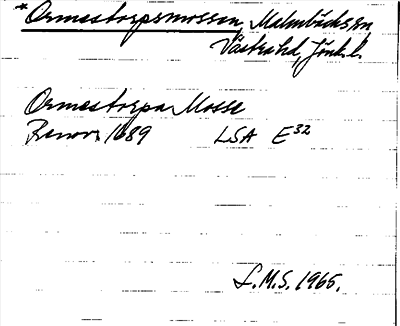 * Ormestorpsmossen, Malmbäcks sn
Västra hd, Jönk. l.
Ormestorpa Mosse
Renov. 1689 LSA E32
L.M.S. 1965.